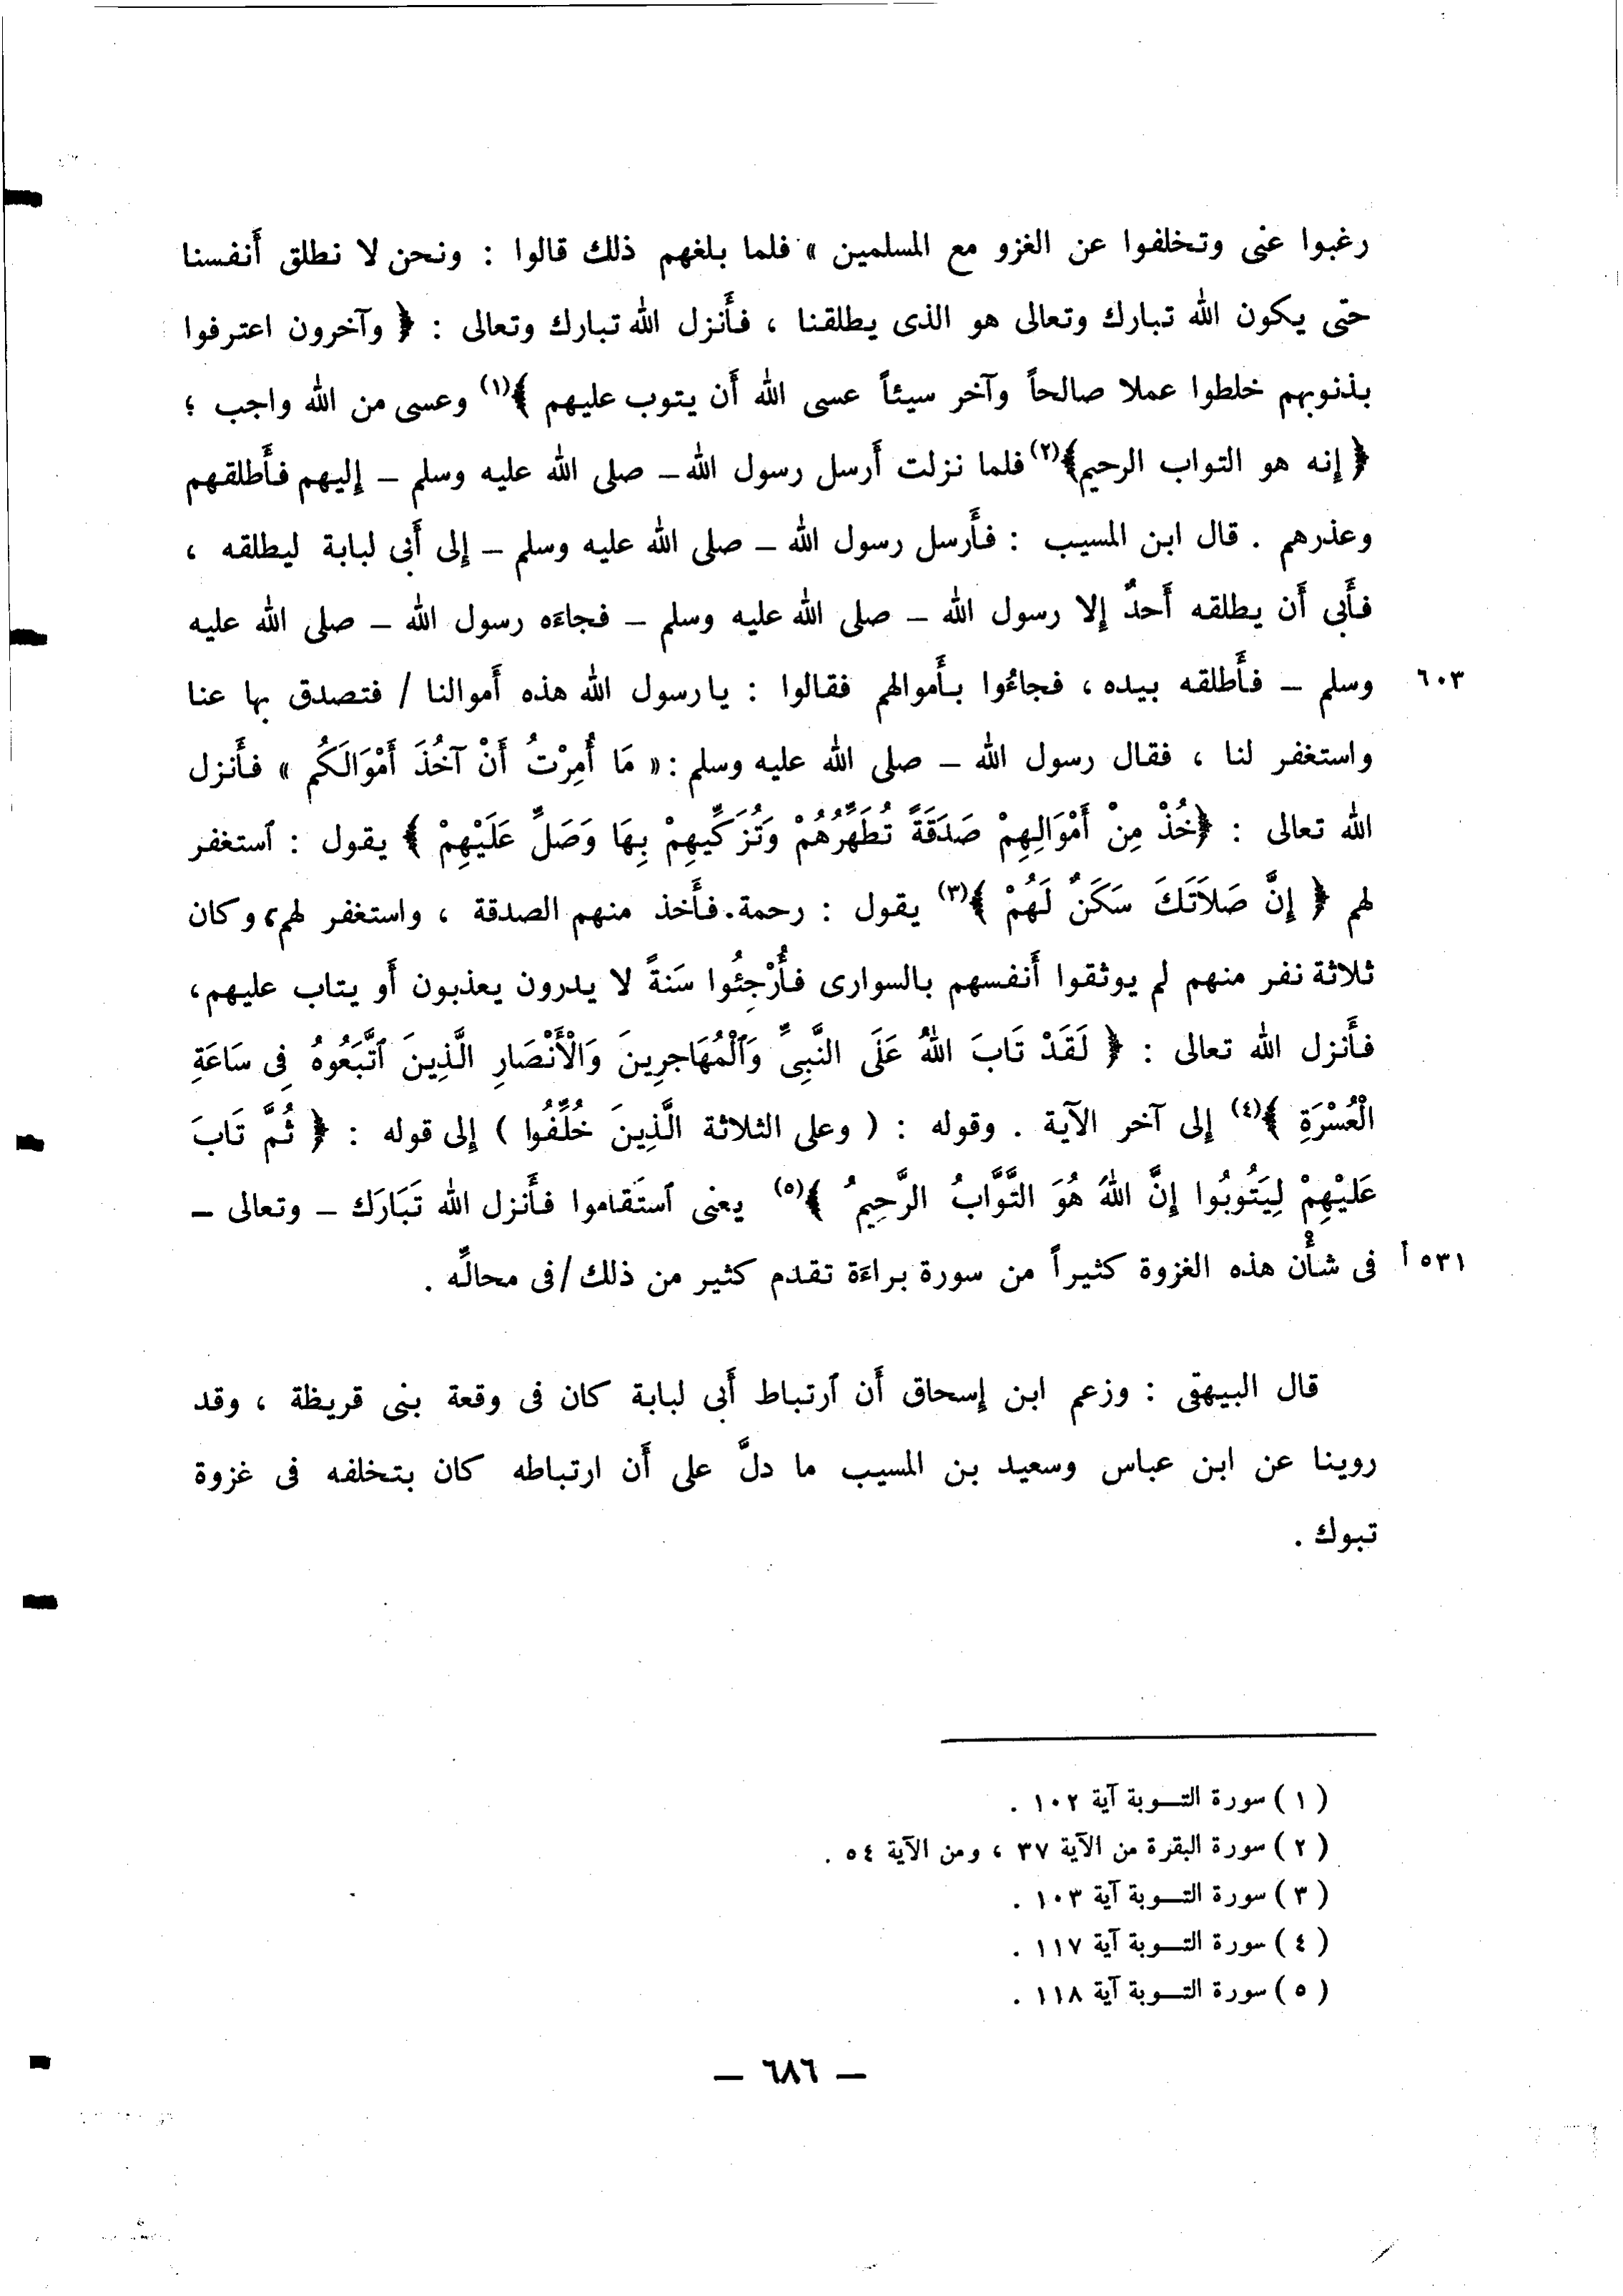 رغبوا عنى وتخلفوا عن الغزو مع المسلمين » فلما بلغهم ذلك قالوا : ونحن لا نطلق أَنفسنا
حتى يكون الله تبارك وتعالى هو الذى يطلقنا ، فأَنزل الله تبارك وتعالى : ﴿ وآخرون اعترفوا
بذنوبهم خلطوا عملا صالحاً وآخر سيئاً عسى الله أَن يتوب عليهم ﴾(١) وعسى من الله واجب ؛
﴿ إنه هو التواب الرحيم﴾(٢) فلما نزلت أَرسل رسول الله – صلى الله عليه وسلم – إليهم فأَطلقهم
وعذرهم . قال ابن المسيب : فأَرسل رسول الله – صلى الله عليه وسلم – إلى أَبى لبابة ليطلقه ،
فأَبى أَن يطلقه أَحدٌ إلا رسول الله – صلى الله عليه وسلم – فجاءَه رسول الله – صلى الله عليه
٦٠٣ وسلم – فأَطلقه بيده ، فجاءُوا بأَموالهم فقالوا : يا رسول الله هذه أَموالنا / فتصدق بها عنا
واستغفر لنا ، فقال رسول الله – صلى الله عليه وسلم : « مَا أُمِرْتُ أَنْ آخُذَ أَمْوَالَكُم » فأَنزل
الله تعالى : ﴿خُذْ مِنْ أَمْوَالِهِمْ صَدَقَةً تُطَهِّرُهُمْ وَتُزَكِّيهِمْ بِهَا وَصَلِّ عَلَيْهِمْ ﴾ يقول : ٱستغفر
لهم ﴿ إِنَّ صَلَاتَكَ سَكَنٌ لَهُمْ ﴾(٣) يقول : رحمة. فأَخذ منهم الصدقة ، واستغفر لهم، وكان
ثلاثة نفر منهم لم يوثقوا أَنفسهم بالسوارى فأُرْجِئُوا سَنةً لا يدرون يعذبون أَو يتاب عليهم ،
فأَنزل الله تعالى : ﴿ لَقَدْ تَابَ اللهُ عَلَى النَّبِىِّ وَٱلْمُهَاجرِينَ وَالْأَنْصَارِ الَّذِينَ ٱتَّبَعُوهُ فِى سَاعَةِ
الْعُسْرَةِ ﴾(٤) إلى آخر الآية . وقوله : ( وعلى الثلاثة الَّذِينَ خُلِّفُوا ) إلى قوله : ﴿ ثُمَّ تَابَ
عَلَيْهِمْ لِيَتُوبُوا إِنَّ اللهَ هُوَ التَّوَّابُ الرَّحِيمُ ﴾(٥) يعنى ٱستَقاموا فأَنزل الله تَبَارَك – وتعالى –
٥٣١ أ فى شأْن هذه الغزوة كثيراً من سورة براءَة تقدم كثير من ذلك / فى محالِّه .
قال البيهقى : وزعم ابن إسحاق أَن ٱرتباط أَبى لبابة كان فى وقعة بنى قريظة ، وقد
روينا عن ابن عباس وسعيد بن المسيب ما دلَّ على أَن ارتباطه كان بتخلفه فى غزوة
تبوك .
( ١ ) سورة التـــوبة آية ١٠٢ .
( ٢ ) سورة البقرة من الآية ٣٧ ، ومن الآية ٥٤ .
( ٣ ) سورة التـــوبة آية ١٠٣ .
( ٤ ) سورة التـــوبة آية ١١٧ .
( ٥ ) سورة التـــوبة آية ١١٨ .
– ٦٨٦ –